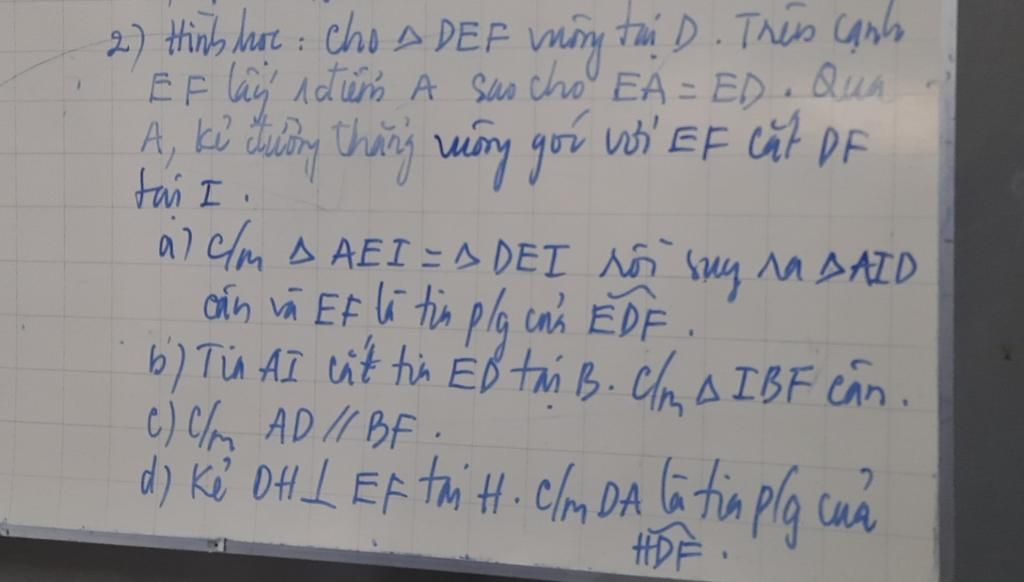 2) Hình học: Cho Δ DEF vuông tại D. Trên cạnh
EF lấy 1 điểm A sao cho EA = ED. Qua
A, kẻ đường thẳng vuông góc với EF cắt DF
tại I.
a) C/m Δ AEI = Δ DEI rồi suy ra Δ AID
cân và EF là tia p/g của EDF.
b) Tia AI cắt tia ED tại B. C/m Δ IBF cân.
c) C/m AD // BF.
d) Kẻ DH ⊥ EF tại H. C/m DA là tia p/g của
HDF.